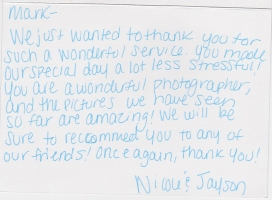 Mark-
We just wanted to thank you for
such a wonderful service. You made
our special day a lot less stressful!
You are a wonderful photographer,
and the pictures we have seen
so far are amazing! We will be
sure to reccomed you to any of
our friends! Once again, thank you!
Nicole & Jayson